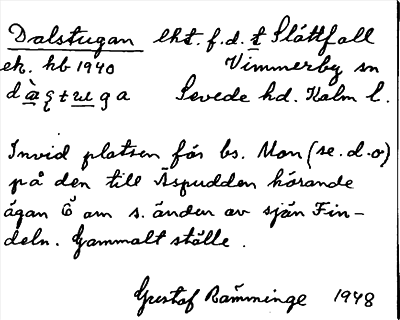 Dalstugan lht. f.d. t Slåttfall
ek. kb 1940 Vimmerby sn
Sevede hd. Kalm l.
Invid platsen för bs. Mon (se. d. o)
på den till Äspudden hörande
ägan Ö om s. änden av sjön Fin-
deln. Gammalt ställe.
Gustaf Rämminge 1948